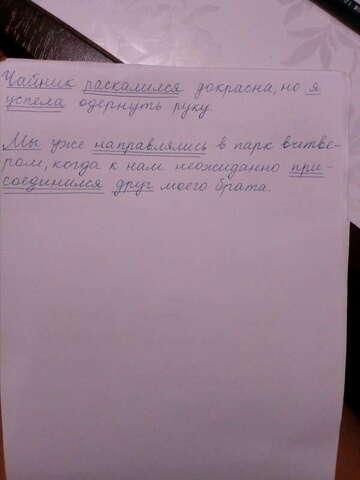 Чайник раскалился докрасна, но я
успела одёрнуть руку.
Мы уже направлялись в парк вытве-
ром, когда к нам неожиданно при-
соединился друг моего брата.